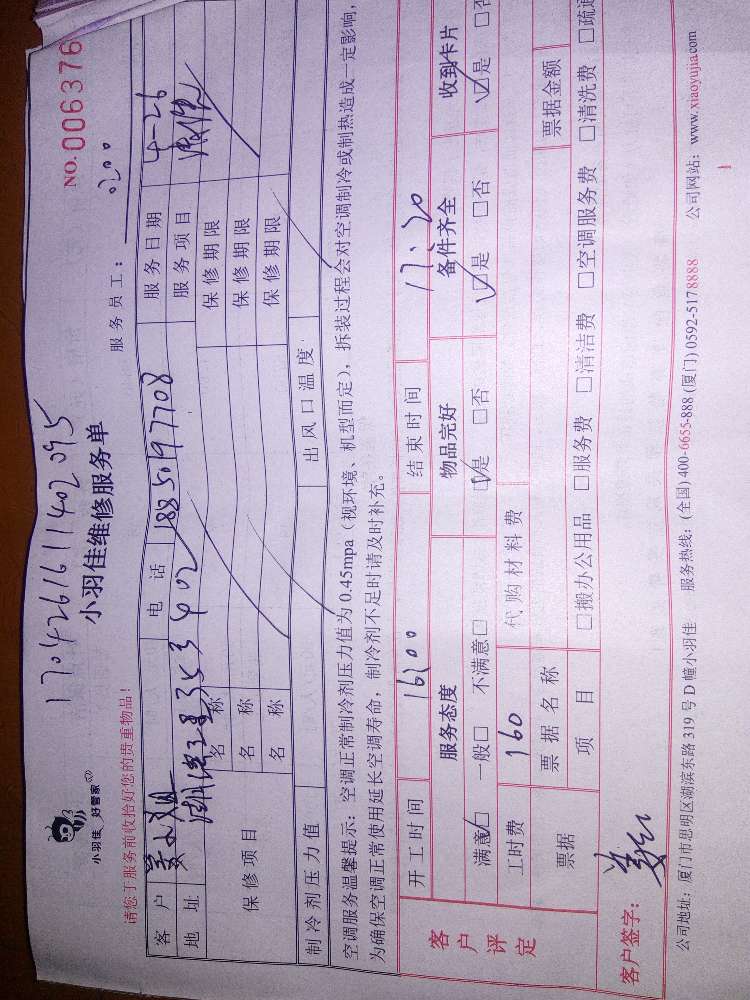 1704261611402095
NO. 006376
小羽佳 好管家
小羽佳维修服务单
服务员工： 0200
请您于服务前收拾好您的贵重物品！
客 户 电 话 18850197708 服务日期 4-26
地 址 353 402 服务项目
保修项目 名 称 保修期限
名 称 保修期限
名 称 保修期限
制冷剂压力值 出风口温度
空调服务温馨提示：空调正常制冷剂压力值为 0.45mpa（视环境、机型而定），拆装过程会对空调制冷或制热造成一定影响，
为确保空调正常使用延长空调寿命，制冷剂不足时请及时补充。
客户评定
开工时间 16:00 结束时间 17:20
服务态度 物品完好 备件齐全 收到卡片
满意□ 一般□ 不满意□ □是 □否 □是 □否 □是 □否
工时费 160 代购材料费
票据 票据名称 票据金额
项 目 □搬办公用品 □服务费 □清洁费 □空调服务费 □清洗费 □疏通
客户签字：
公司地址：厦门市思明区湖滨东路 319 号 D 幢小羽佳 服务热线：(全国) 400-6655-888 (厦门) 0592-5178888 公司网站：www.xiaoyujia.com